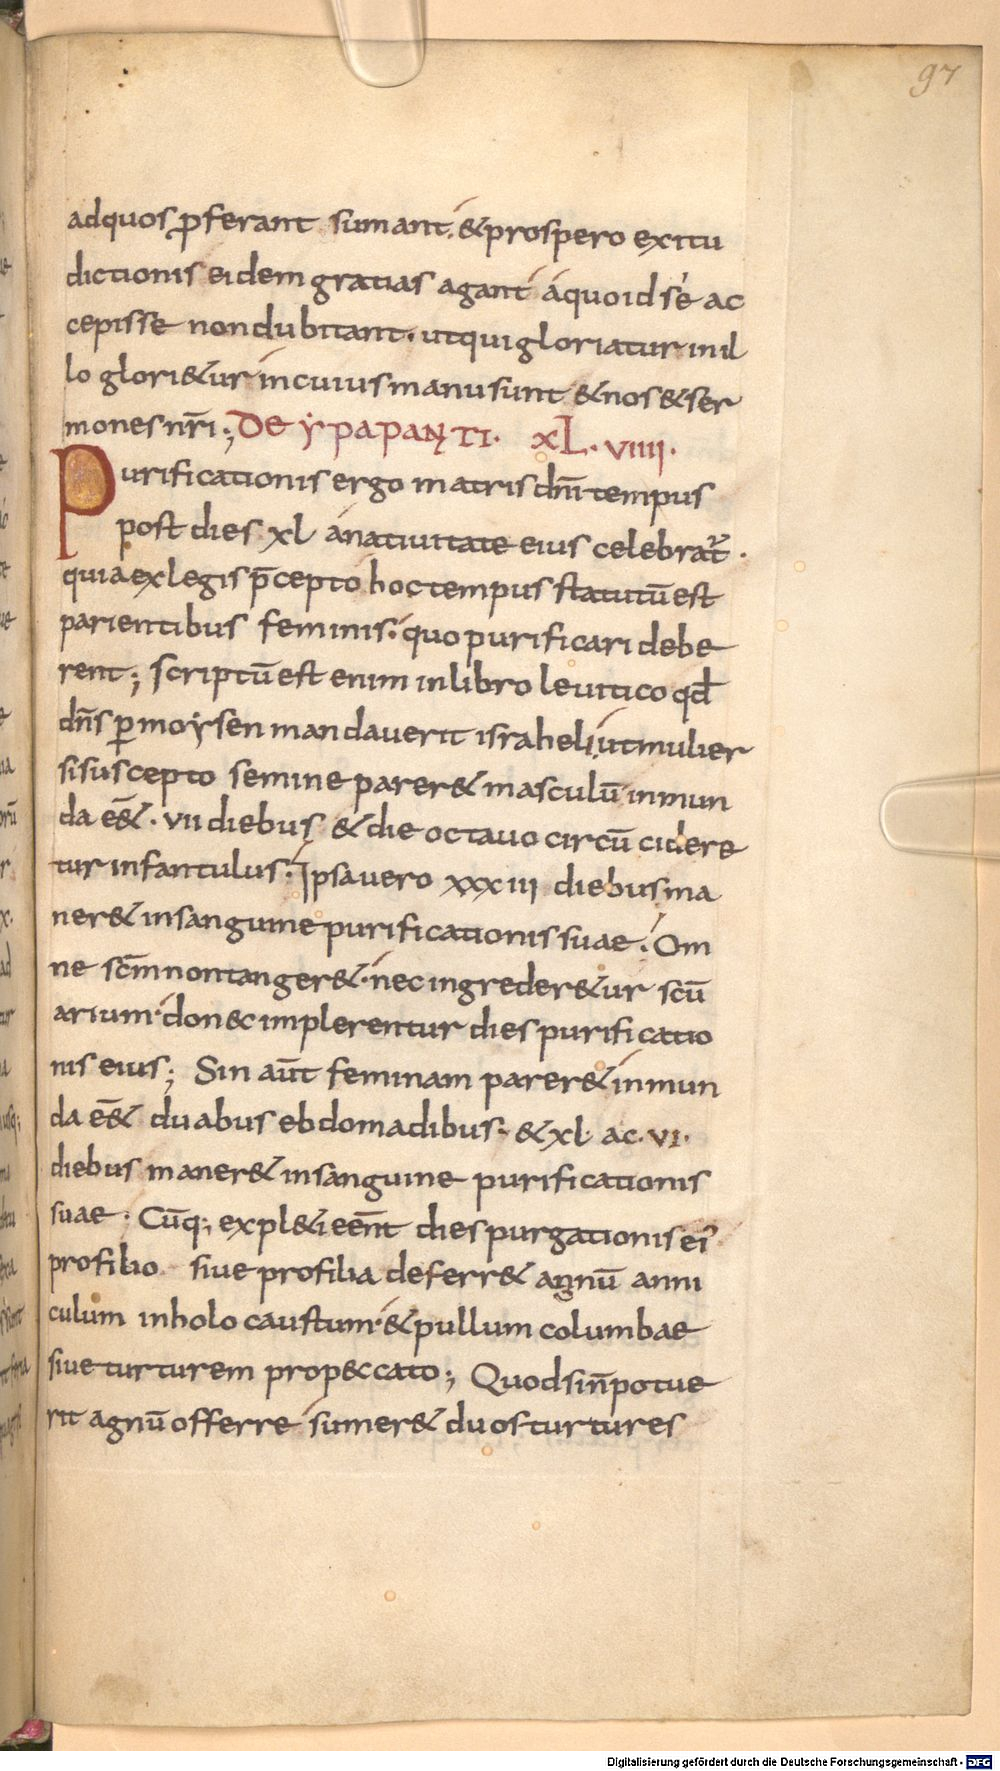 97
adquos ꝓferant sumant. &prospero exitu
dictionis eidem gratias agant áquoid sè ac
cepisse non dubitant. utqui gloriatur inil
lo glori&ur incuius manu sunt &nos &ser
mones nr̄i; De ẏpapanti. xL. viiii.
Purificationis ergo matris dn̄i tempus
post dies xl anativitate eius celebrat᷒.
quia ex legis p̄cepto hoc tempus statutū est
parientibus feminis. quo purificari debe
rent; scriptū est enim inlibro levitico qđ
dn̄s ꝑ moẏsen mandaverit israheli, ut mulier
si suscepto semine parer& masculū inmun
da eē&. vii diebus & die octavo circū cidere
tur infantulus. Ipsa vero xxxiii diebus ma
ner& insanguine purificationis suae. Om
ne scm̄ non tanger&. nec ingreder&ur scū
arium. don&c implerentur dies purificatio
nis eius; Sin aūt feminam parer& inmun
da eē& duabus ebdomadibus. & xl. ac. vi.
diebus maner& insanguine purificationis
suae. Cūq; expl&i eēnt dies purgationis ei᷒
pro filio sive pro filia deferr& agnū anni
culum inholocaustum. & pullum columbae
sive turturem pro pecc&ato; Quod si n̄ potue
rit agnū offerre sumer& duos turtures
Digitalisierung gefördert durch die Deutsche Forschungsgemeinschaft - DFG